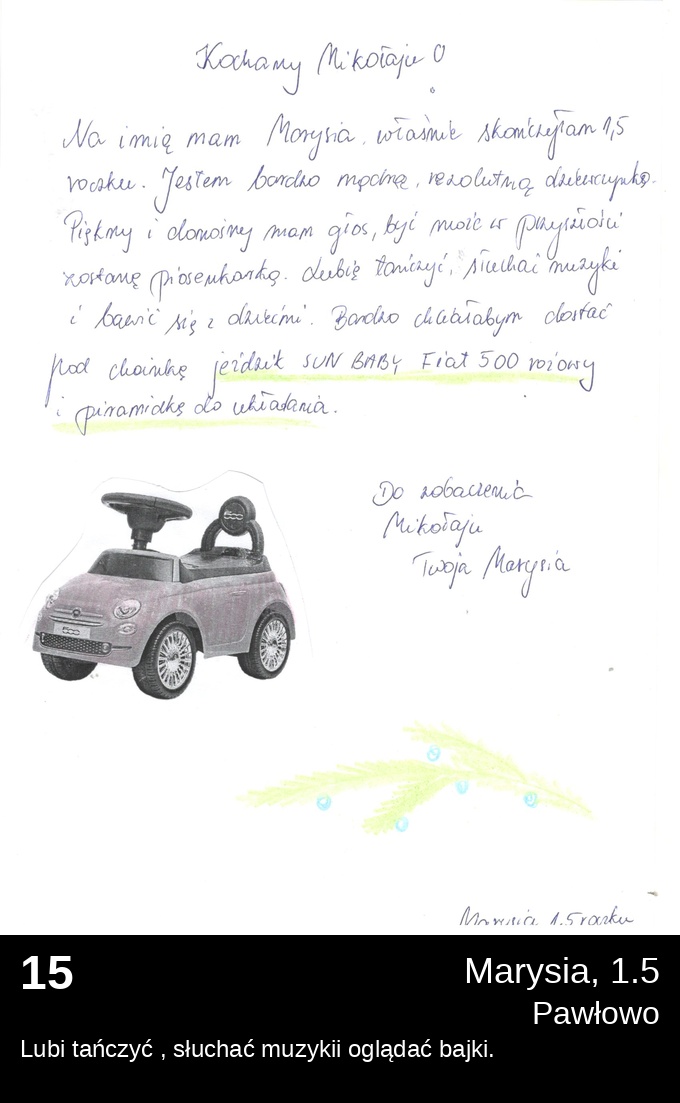 Kochany Mikołaju!
Na imię mam Marysia, właśnie skończyłam 1,5
roczku. Jestem bardzo mądrą, rezolutną dziewczynką.
Piękny i donośny mam głos, być może w przyszłości
zostanę piosenkarką. Lubię tańczyć, słuchać muzyki
i bawić się z dziećmi. Bardzo chciałabym dostać
pod choinkę jeździk SUN BABY Fiat 500 różowy
i piramidkę do układania.
500
500
Do zobaczenia
Mikołaju
Twoja Marysia
Marysia 1,5 roczku
15
Marysia, 1.5
Pawłowo
Lubi tańczyć , słuchać muzykii oglądać bajki.